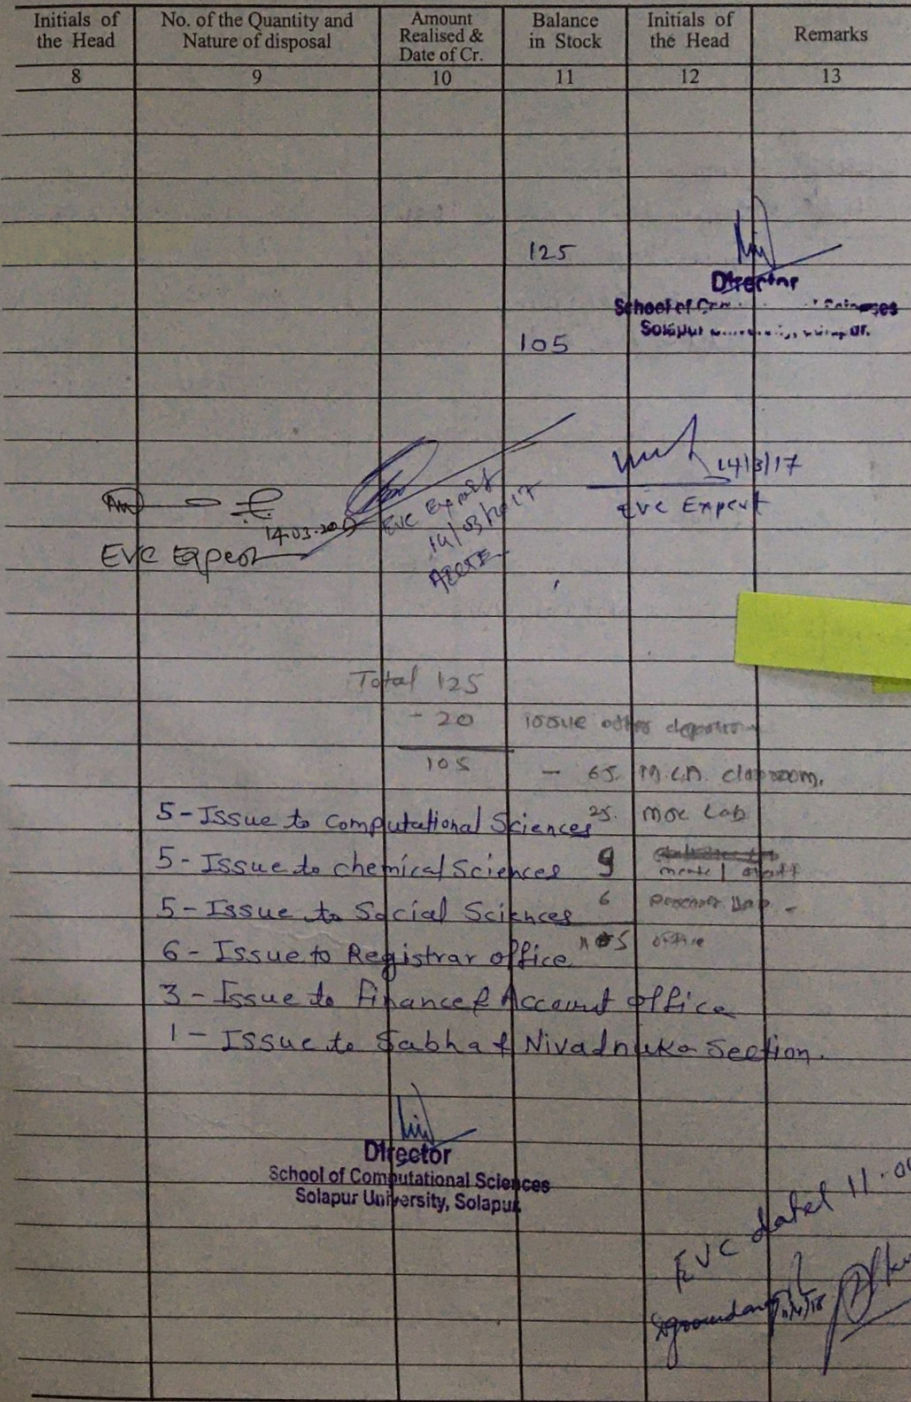 Initials of the Head No. of the Quantity and Nature of disposal Amount Realised & Date of Cr. Balance in Stock Initials of the Head Remarks
8 9 10 11 12 13
125
Director
School of
Solapur
105
14/3/17
EVC Expert
14.03.2017
EVC Expert
EVC Expert
14/03/2017
Total 125
- 20 issue other
105 - 65 M.C.A. classroom,
5 - Issue to Computational Sciences 25. Lab
5 - Issue to chemical Sciences 9
5 - Issue to Social Sciences 6
6 - Issue to Registrar office office
3 - Issue to Finance & Account office
1 - Issue to Sabha & Nivadnuka Section.
Director
School of Computational Sciences
Solapur University, Solapur.
EVC dated 11.0